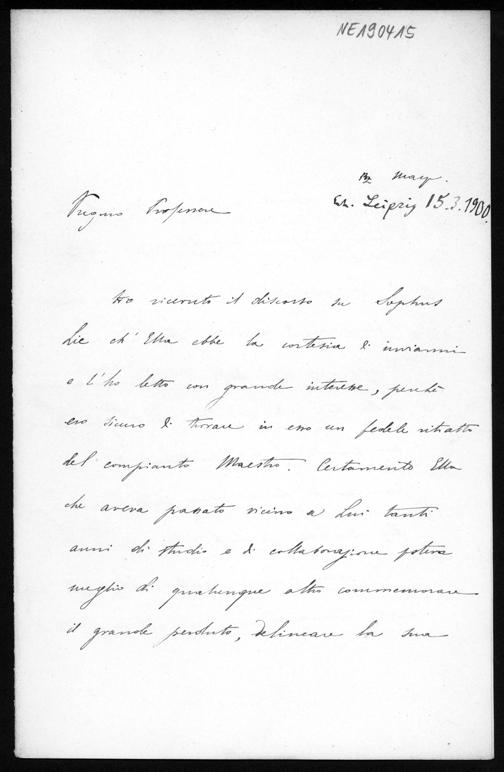 NE190415
13 Marzo
Erh. Leipzig 15.3.1900.
Pregmo Professore
Ho ricevuto il discorso su Sophus
Lie ch' Ella ebbe la cortesia di inviarmi
e l'ho letto con grande interesse, perchè
ero sicuro di trovare in esso un fedele ritratto
del compianto Maestro. Certamente Ella
che aveva passato vicino a Lui tanti
anni di studio e di collaborazione poteva
meglio di qualunque altro commemorare
il grande perduto, delineare la sua